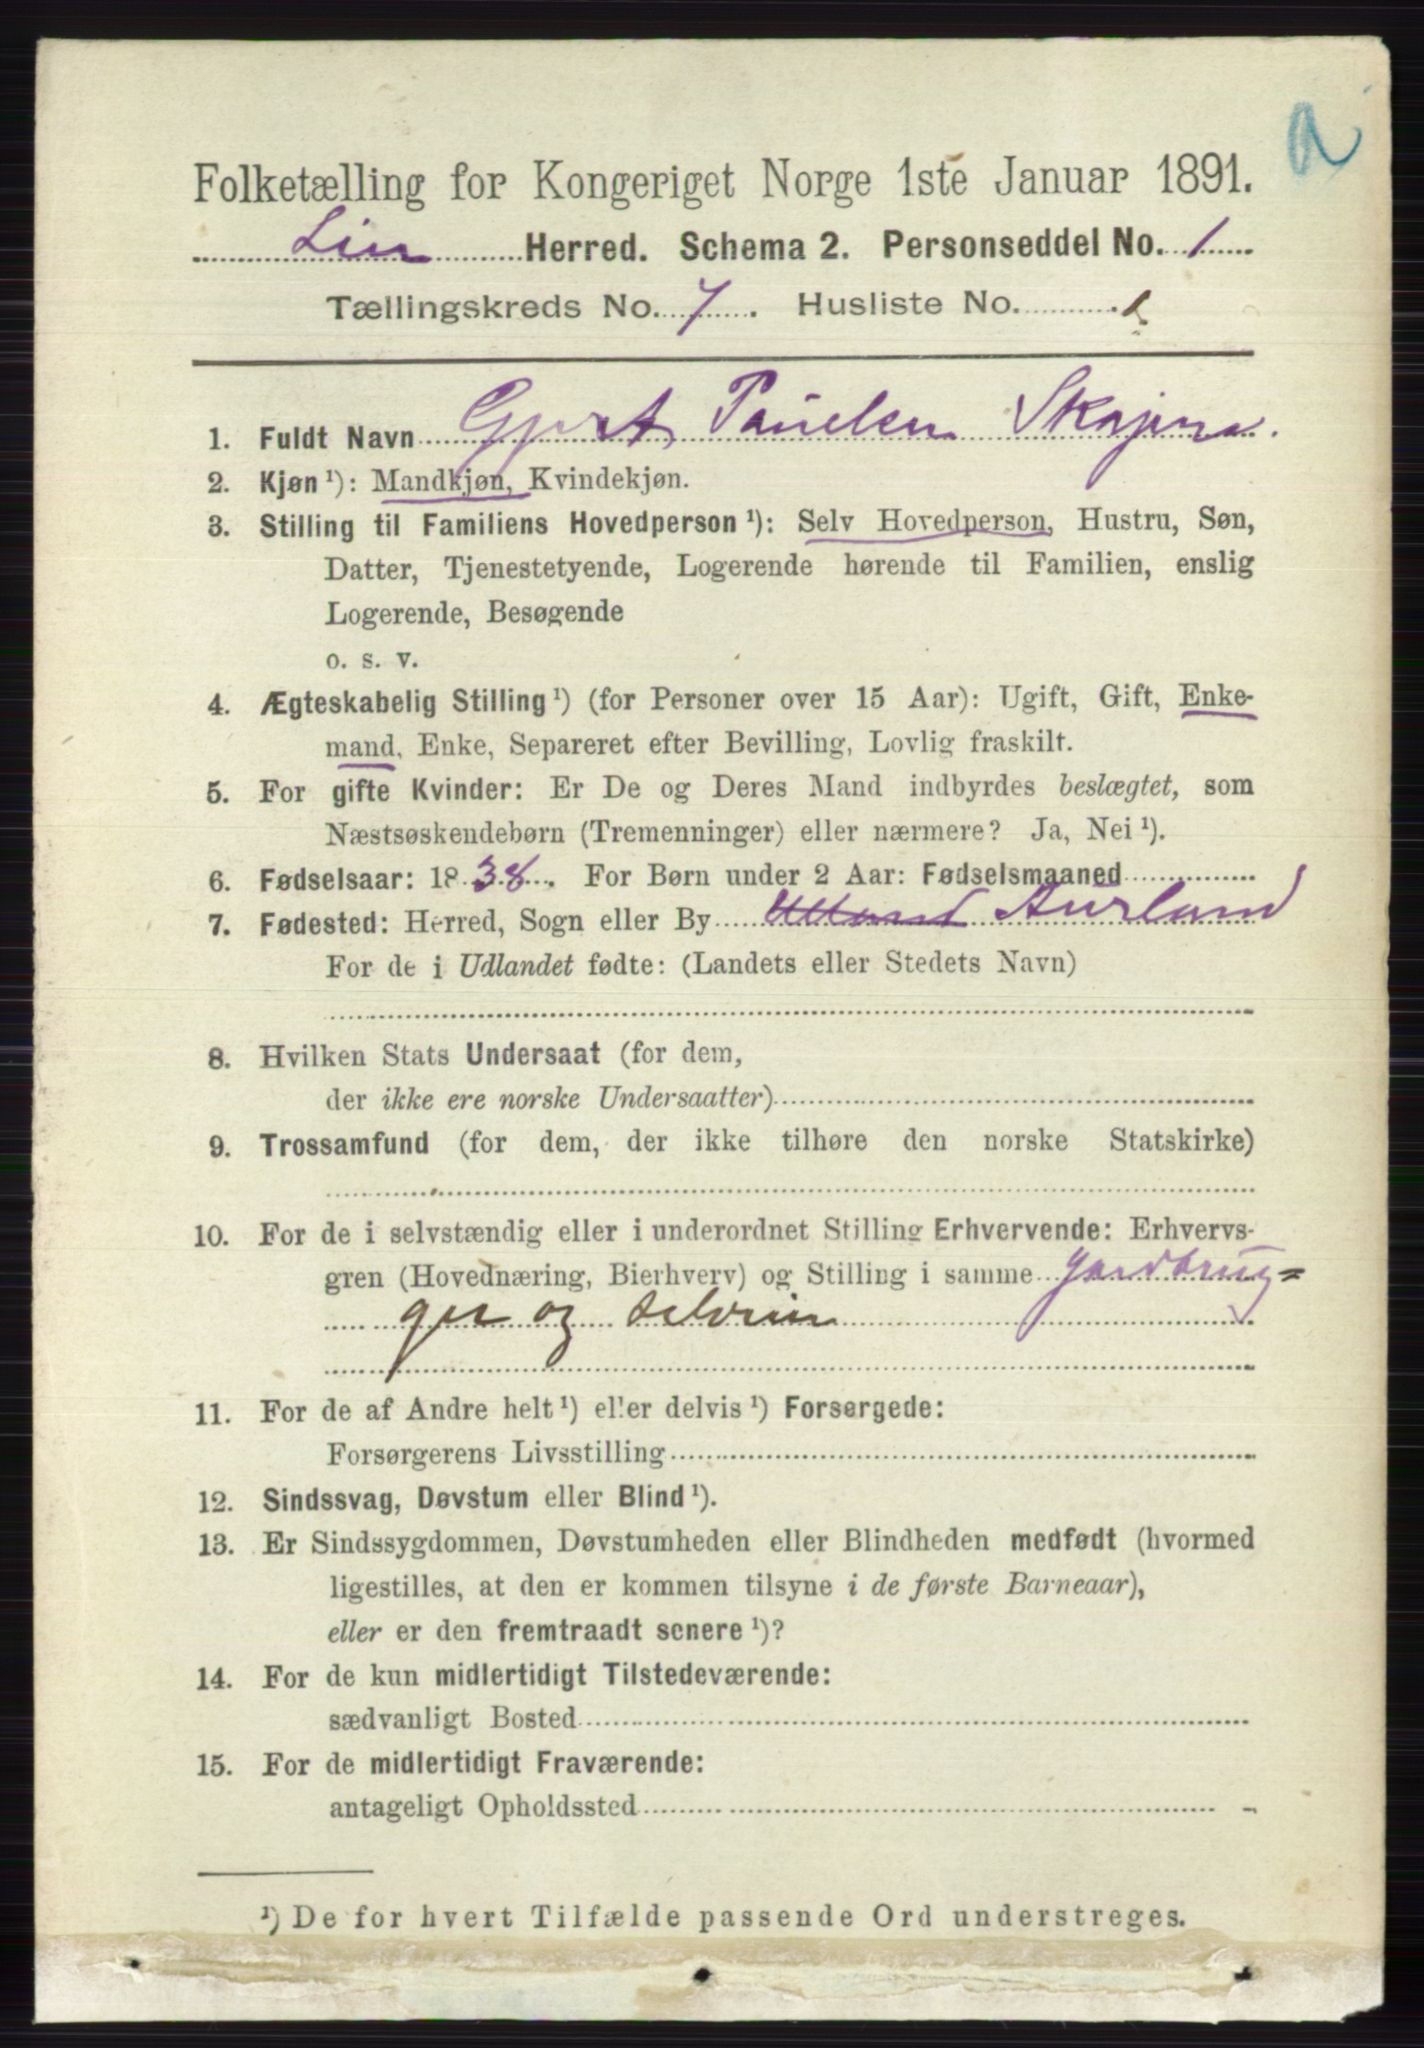 a
Folketælling for Kongeriget Norge 1ste Januar 1891.
Lier Herred. Schema 2. Personseddel No. 1
Tællingskreds No. 7. Husliste No. 1
1. Fuldt Navn Gjert Paulsen
2. Kjøn ¹): Mandkjøn, Kvindekjøn.
3. Stilling til Familiens Hovedperson ¹): Selv Hovedperson, Hustru, Søn,
Datter, Tjenestetyende, Logerende hørende til Familien, enslig
Logerende, Besøgende
o. s. v.
4. Ægteskabelig Stilling ¹) (for Personer over 15 Aar): Ugift, Gift, Enke-
mand, Enke, Separeret efter Bevilling, Lovlig fraskilt.
5. For gifte Kvinder: Er De og Deres Mand indbyrdes beslægtet, som
Næstsøskendebørn (Tremenninger) eller nærmere? Ja, Nei ¹).
6. Fødselsaar: 1838. For Børn under 2 Aar: Fødselsmaaned
7. Fødested: Herred, Sogn eller By Aurland
For de i Udlandet fødte: (Landets eller Stedets Navn)
8. Hvilken Stats Undersaat (for dem,
der ikke ere norske Undersaatter)
9. Trossamfund (for dem, der ikke tilhøre den norske Statskirke)
10. For de i selvstændig eller i underordnet Stilling Erhvervende: Erhvervs-
gren (Hovednæring, Bierhverv) og Stilling i samme Gardbrug=
ger og selveier
11. For de af Andre helt ¹) eller delvis ¹) Forsørgede:
Forsørgerens Livsstilling
12. Sindssvag, Døvstum eller Blind ¹).
13. Er Sindssygdommen, Døvstumheden eller Blindheden medfødt (hvormed
ligestilles, at den er kommen tilsyne i de første Barneaar),
eller er den fremtraadt senere ¹)?
14. For de kun midlertidigt Tilstedeværende:
sædvanligt Bosted
15. For de midlertidigt Fraværende:
antageligt Opholdssted
¹) De for hvert Tilfælde passende Ord understreges.